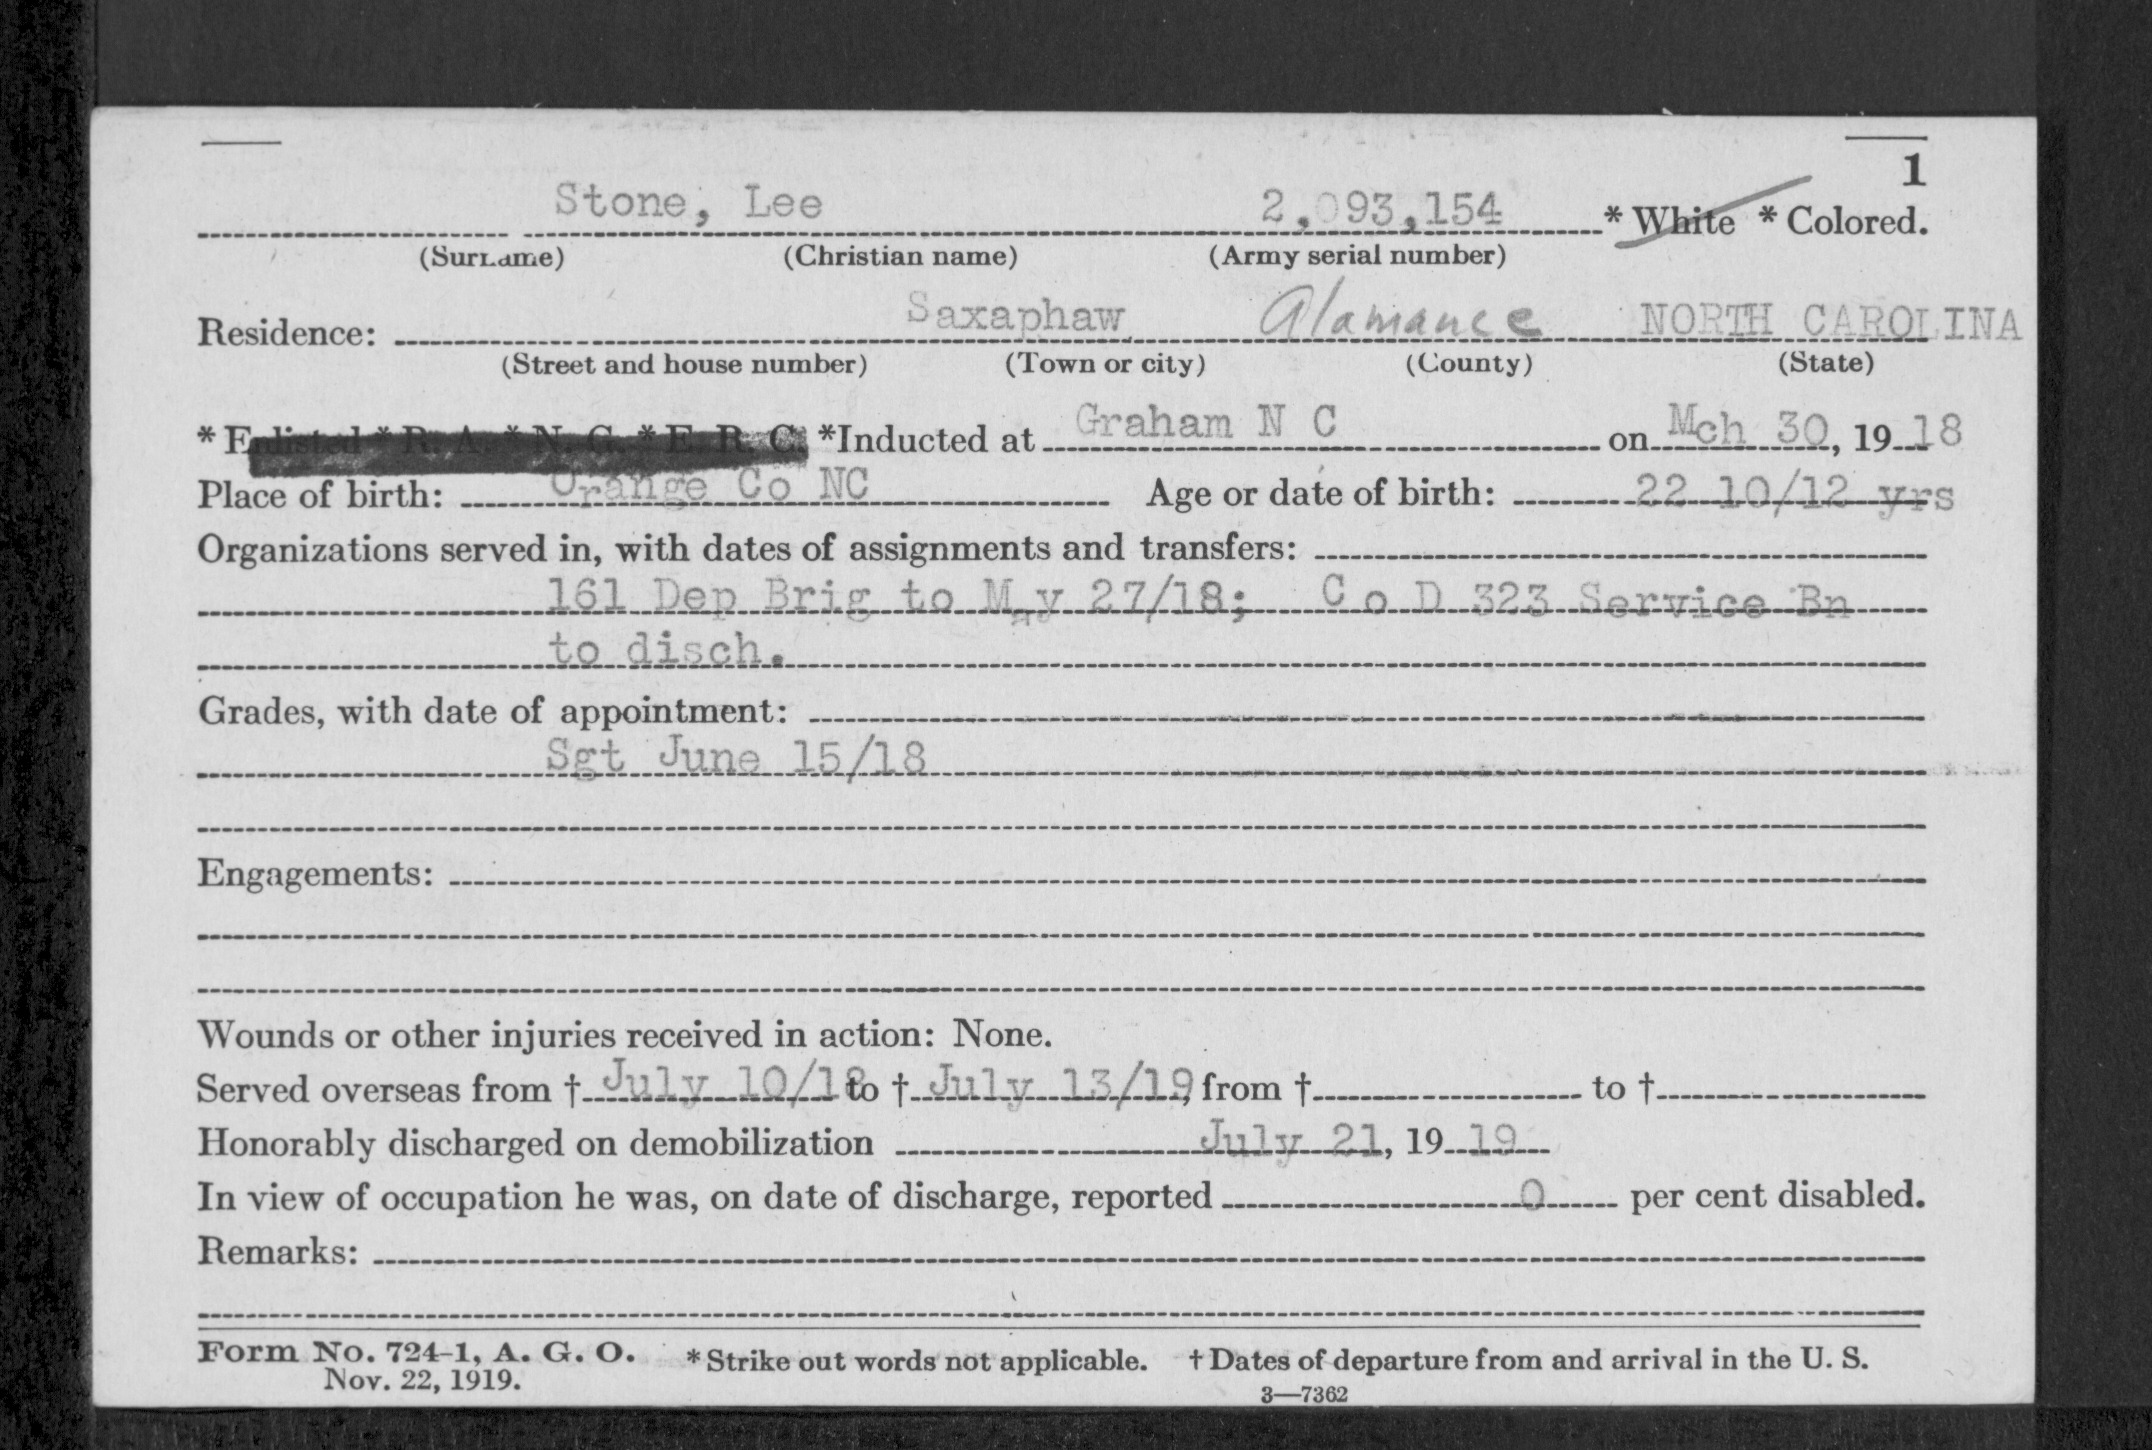 1
Stone, Lee 2,093,154 * White * Colored.
(Surname) (Christian name) (Army serial number)
Residence: Saxaphaw Alamance NORTH CAROLINA
(Street and house number) (Town or city) (County) (State)
* Enlisted * R. A. * N. G. * E. R. C. *Inducted at Graham N C on Mch 30, 19 18
Place of birth: Orange Co NC Age or date of birth: 22 10/12 yrs
Organizations served in, with dates of assignments and transfers:
161 Dep Brig to May 27/18; Co D 323 Service Bn
to disch.
Grades, with date of appointment:
Sgt June 15/18
Engagements:
Wounds or other injuries received in action: None.
Served overseas from † July 10/18 to † July 13/19, from † to †
Honorably discharged on demobilization July 21, 19 19
In view of occupation he was, on date of discharge, reported 0 per cent disabled.
Remarks:
Form No. 724-1, A. G. O. * Strike out words not applicable. † Dates of departure from and arrival in the U. S.
Nov. 22, 1919.
3—7362